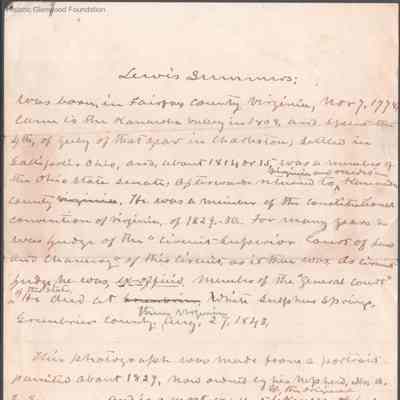 Historic Glenwood Foundation
Lewis Summers;
was born in Fairfax County Virginia, Nov 7, 1778
Came to the Kanawha valley in 1808, and spent the
4th, of July of that year in Charleston; settled in
Gallipolis Ohio, and, about 1814 or 15 was a member of
the Ohio State Senate; Afterwards returned to Virginia and resided in Kanawha
County Virginia. He was a member of the Constitutional
convention of Virginia, of 1829-30. For many years he
was judge of the "Circuit Superior Court of Law
and Chancery" of this circuit as it then was. As circuit
judge, he was, ex-officio, member of the "General court"
of the State,
He died at White Sulphur Springs,
Greenbrier County, then Virginia Aug. 27, 1843,
This photograph was made from a portrait
painted about 1829, now owned by his nephew,